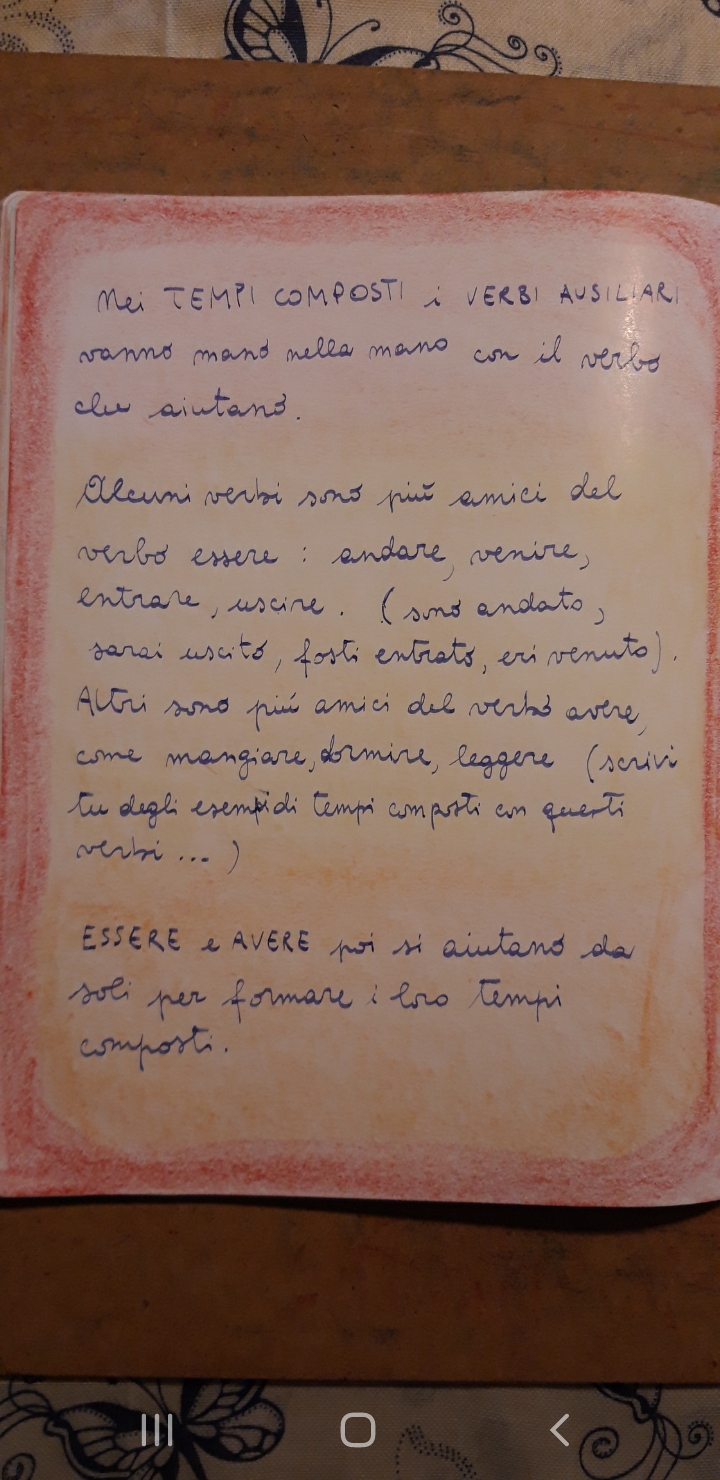 Nei TEMPI COMPOSTI i VERBI AUSILIARI
vanno mano nella mano con il verbo
che aiutano.
Alcuni verbi sono più amici del
verbo essere : andare, venire,
entrare, uscire. (sono andato,
sarai uscito, fosti entrato, eri venuto).
Altri sono più amici del verbo avere,
come mangiare, dormire, leggere (scrivi
tu degli esempi di tempi composti con questi
verbi ... )
ESSERE e AVERE poi si aiutano da
soli per formare i loro tempi
composti.